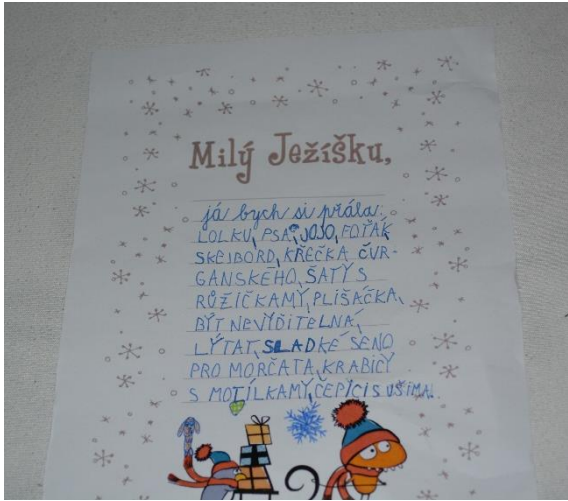 Milý Ježíšku,
já bych si přála:
LOLKU, PSA, JOJO, FOŤÁK
SKEJBORD, KŘEČKA ČUR-
GANSKÉHO, ŠATY S
RŮŽIČKAMÝ, PLIŠÁČKA,
BÝT NeVÝDiTeLNÁ,
LÝTAT, SLADKÉ SENO
PRO MORČATA, KRABICÝ
S MOTÍLKAMÝ, ČEPÍCI S UŠIMA.